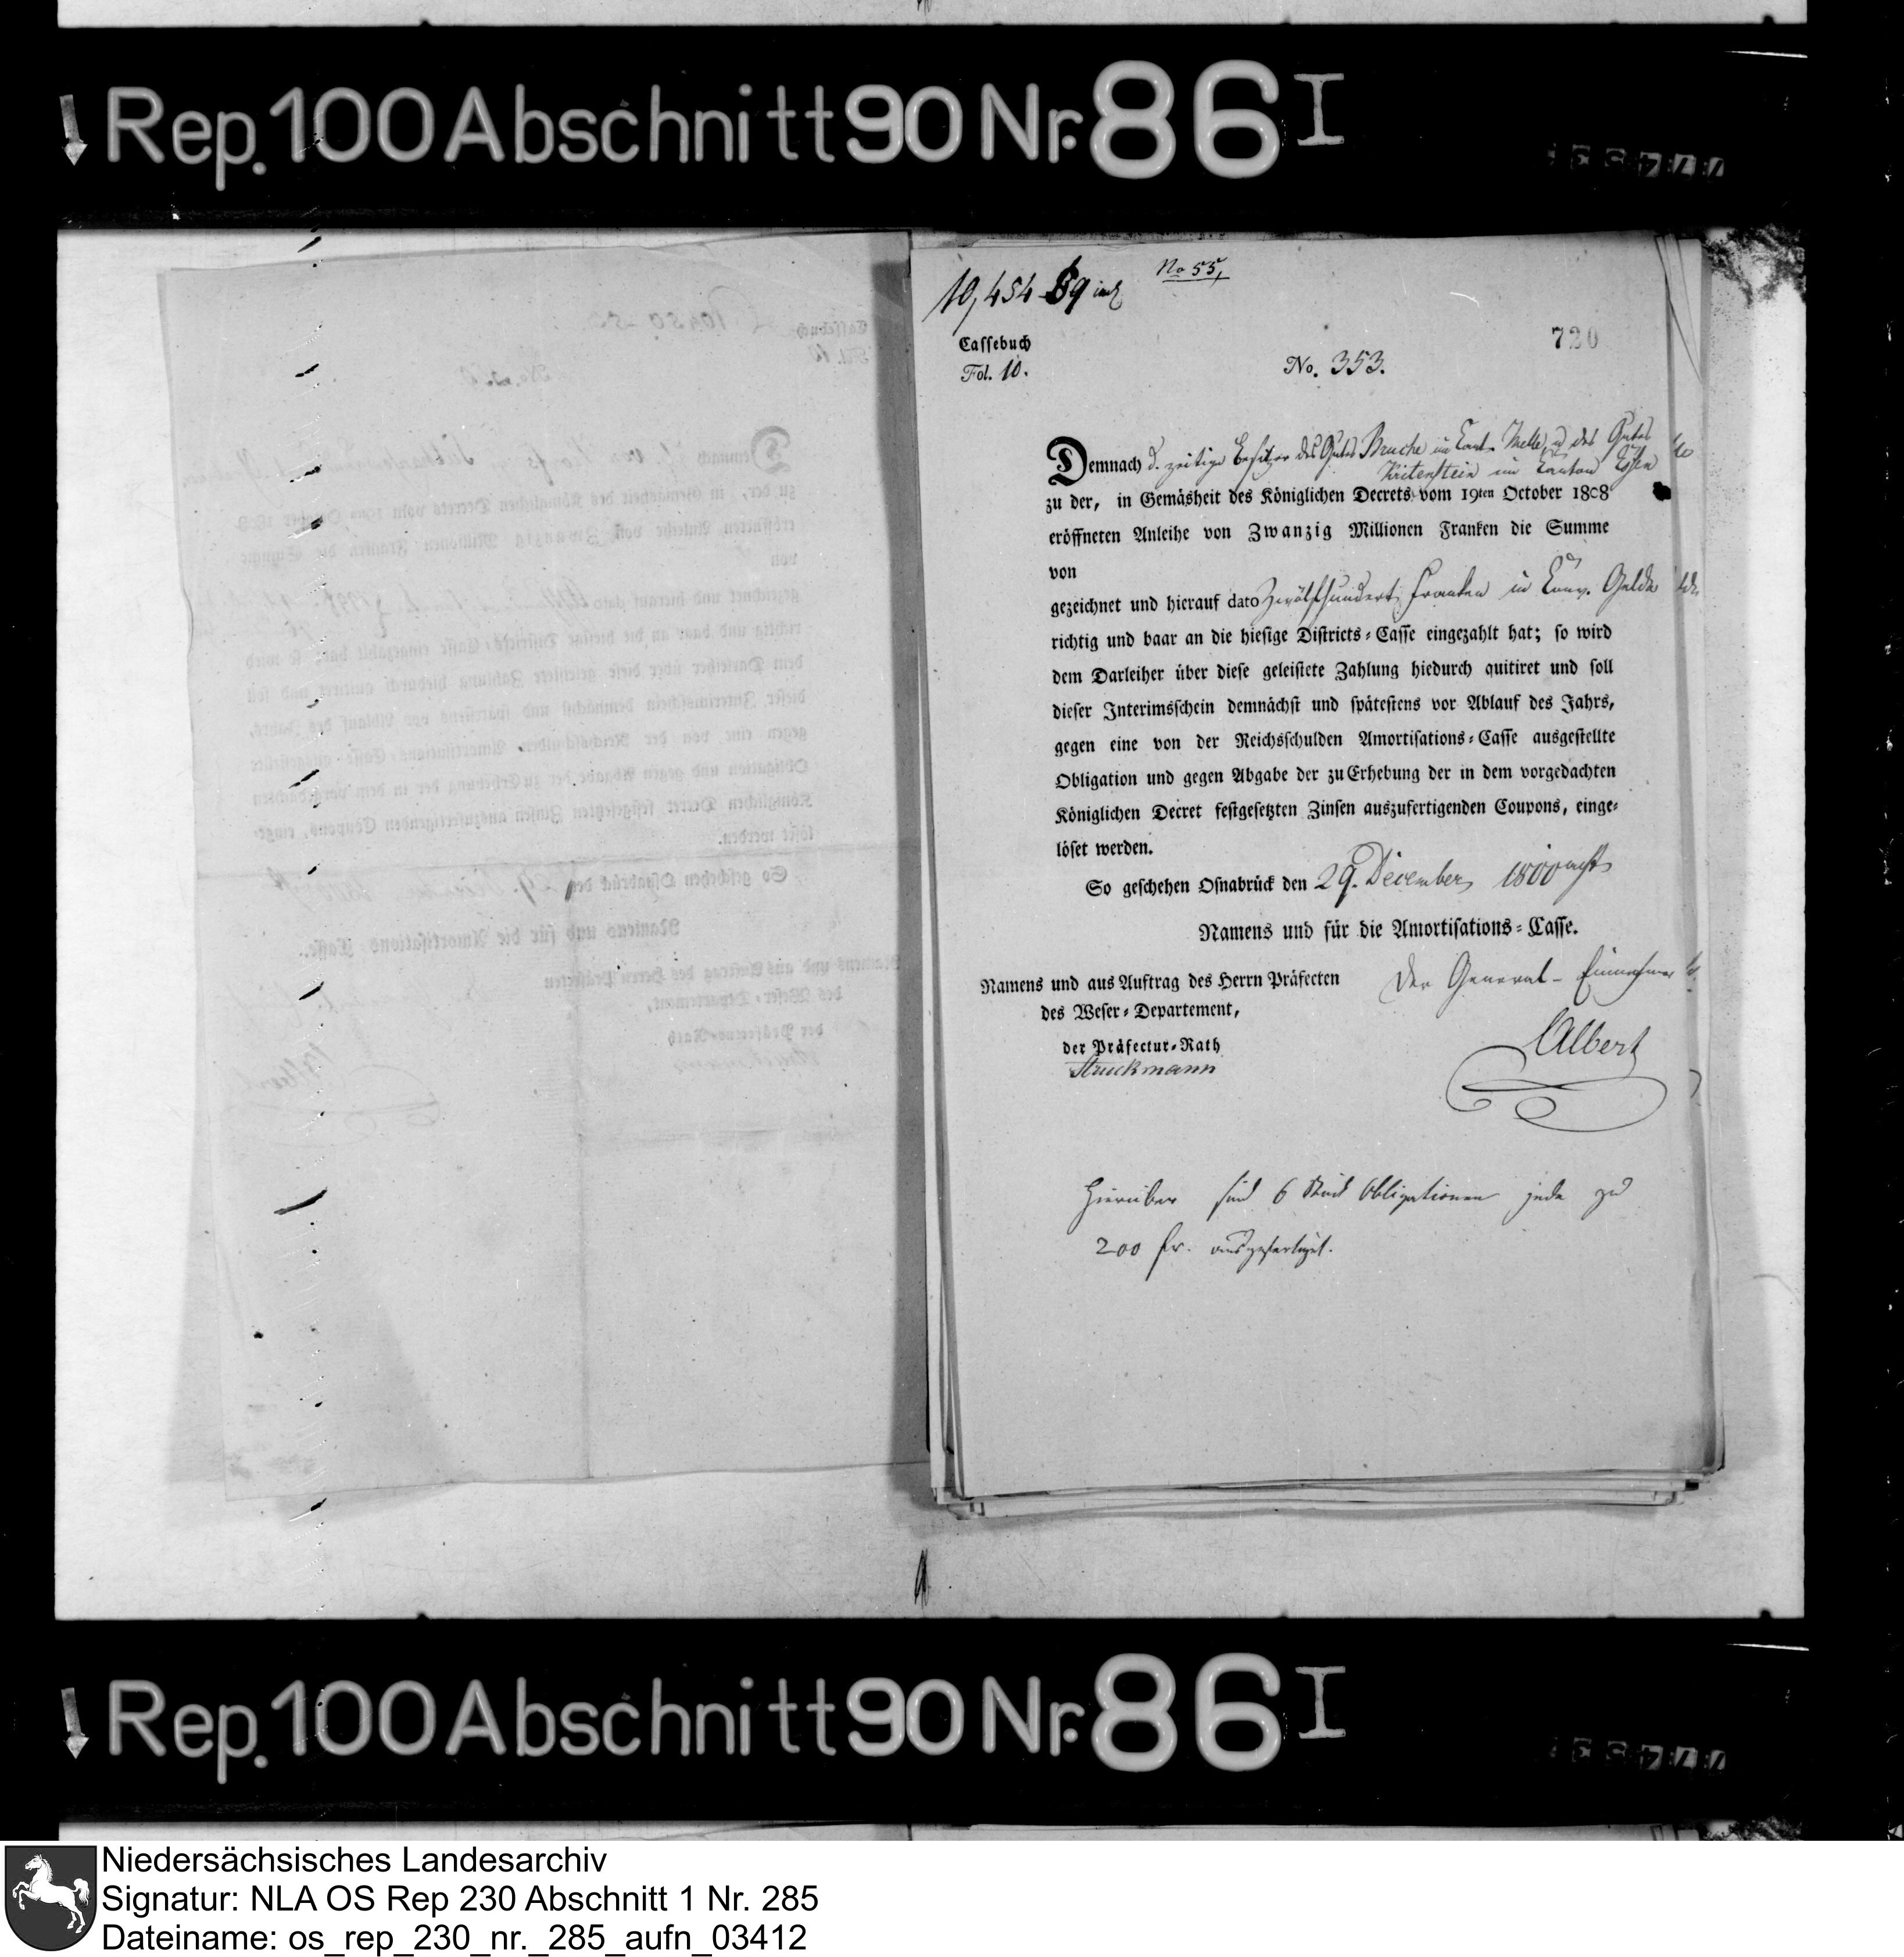 Rep. 100 Abschnitt 90 Nr. 86 I
No 55,
10,454 59 incl
720
Cassebuch
Fol. 10.
No. 353.
Demnach d. zeitige Besitzer des Gutes Bruche im Cant. Melle u des Gutes
im Canton
zu der, in Gemäsheit des Königlichen Decrets vom 19ten October 1808
eröffneten Anleihe von Zwanzig Millionen Franken die Summe
von
gezeichnet und hierauf dato Zwölfhundert Franken in Conv. Gelde
richtig und baar an die hiesige Districts-Casse eingezahlt hat; so wird
dem Darleiher über diese geleistete Zahlung hiedurch quitiret und soll
dieser Interimsschein demnächst und spätestens vor Ablauf des Jahrs,
gegen eine von der Reichsschulden Amortisations-Casse ausgestellte
Obligation und gegen Abgabe der zu Erhebung der in dem vorgedachten
Königlichen Decret festgesetzten Zinsen auszufertigenden Coupons, einge-
löset werden.
So geschehen Osnabrück den 29. December 1800 acht
Namens und für die Amortisations-Casse.
Namens und aus Auftrag des Herrn Präfecten
des Weser-Departement,
der Präfectur-Rath
Struckmann
Der General-Einnehmer
Albert
Hierüber sind 6 Stück Obligationen jede zu
200 fr. ausgefertigt.
Rep. 100 Abschnitt 90 Nr. 86 I
Niedersächsisches Landesarchiv
Signatur: NLA OS Rep 230 Abschnitt 1 Nr. 285
Dateiname: os_rep_230_nr._285_aufn_03412